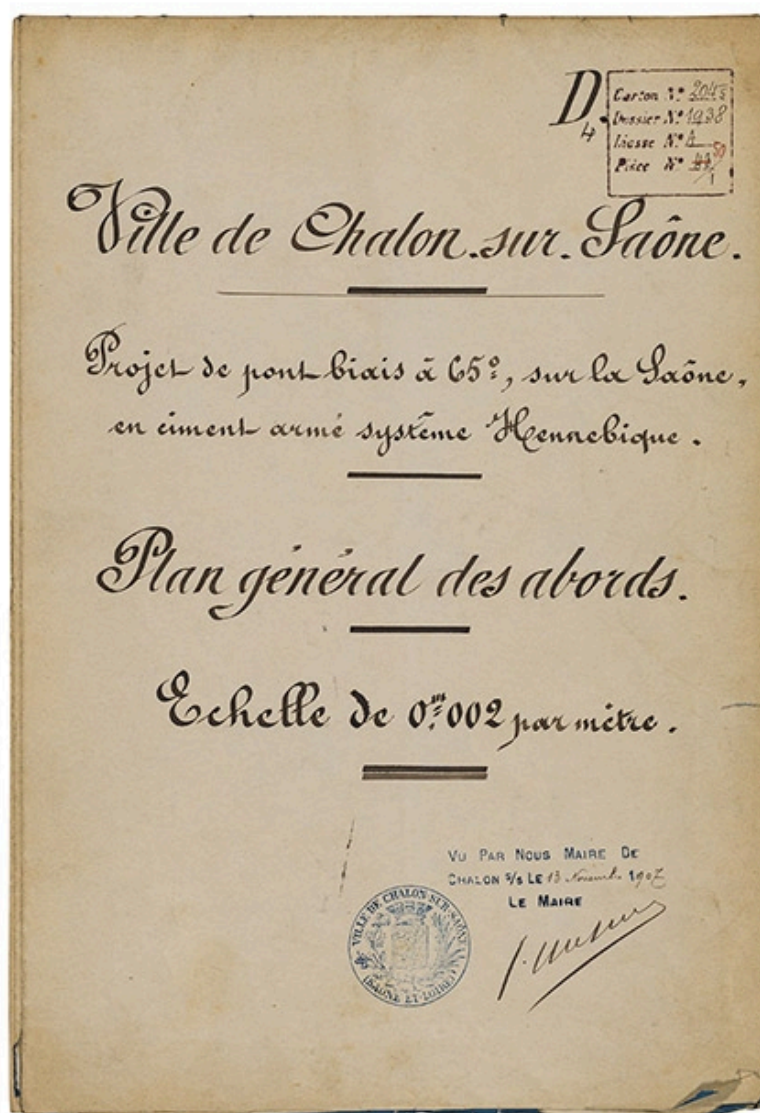 D.
4
Carton Nº 2045
Dossier Nº 1938
Liasse Nº A
Pièce Nº
50
1
Ville de Chalon-sur-Saône.
Projet de pont biais à 65º, sur la Saône,
en ciment armé système Hennebique.
Plan général des abords.
Echelle de 0.ᵐ002 par mètre.
VU PAR NOUS MAIRE DE
CHALON S/S LE 13 Novembre 1907
LE MAIRE
VILLE DE CHALON-SUR-SAÔNE
(SAÔNE-ET-LOIRE)